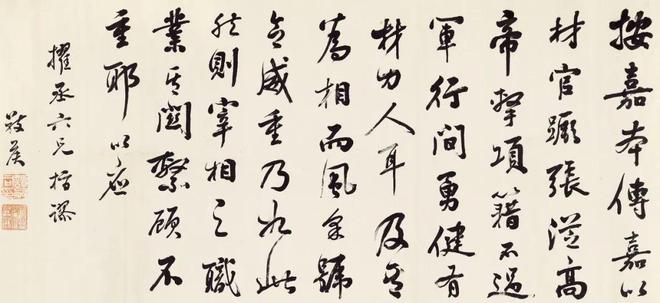 按嘉本傳嘉以
材官蹶張從高
帝擊項籍不過
軍行間勇健有
材力人耳及其
為相而風采號
令威重乃如此
然則宰相之職
業其關繫顧不
重耶 以應
擢丞六兄指謬